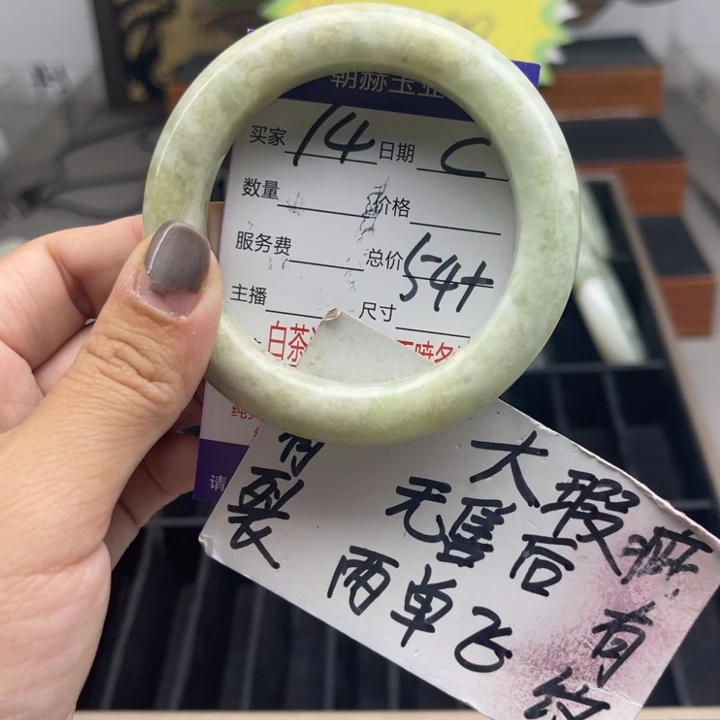 朝赫玉业
买家 14 日期 C
数量 价格
服务费 总价 54+
主播 尺寸
白茶
喷务
请
有裂
大瑕疵
无售后 有纹
两单飞